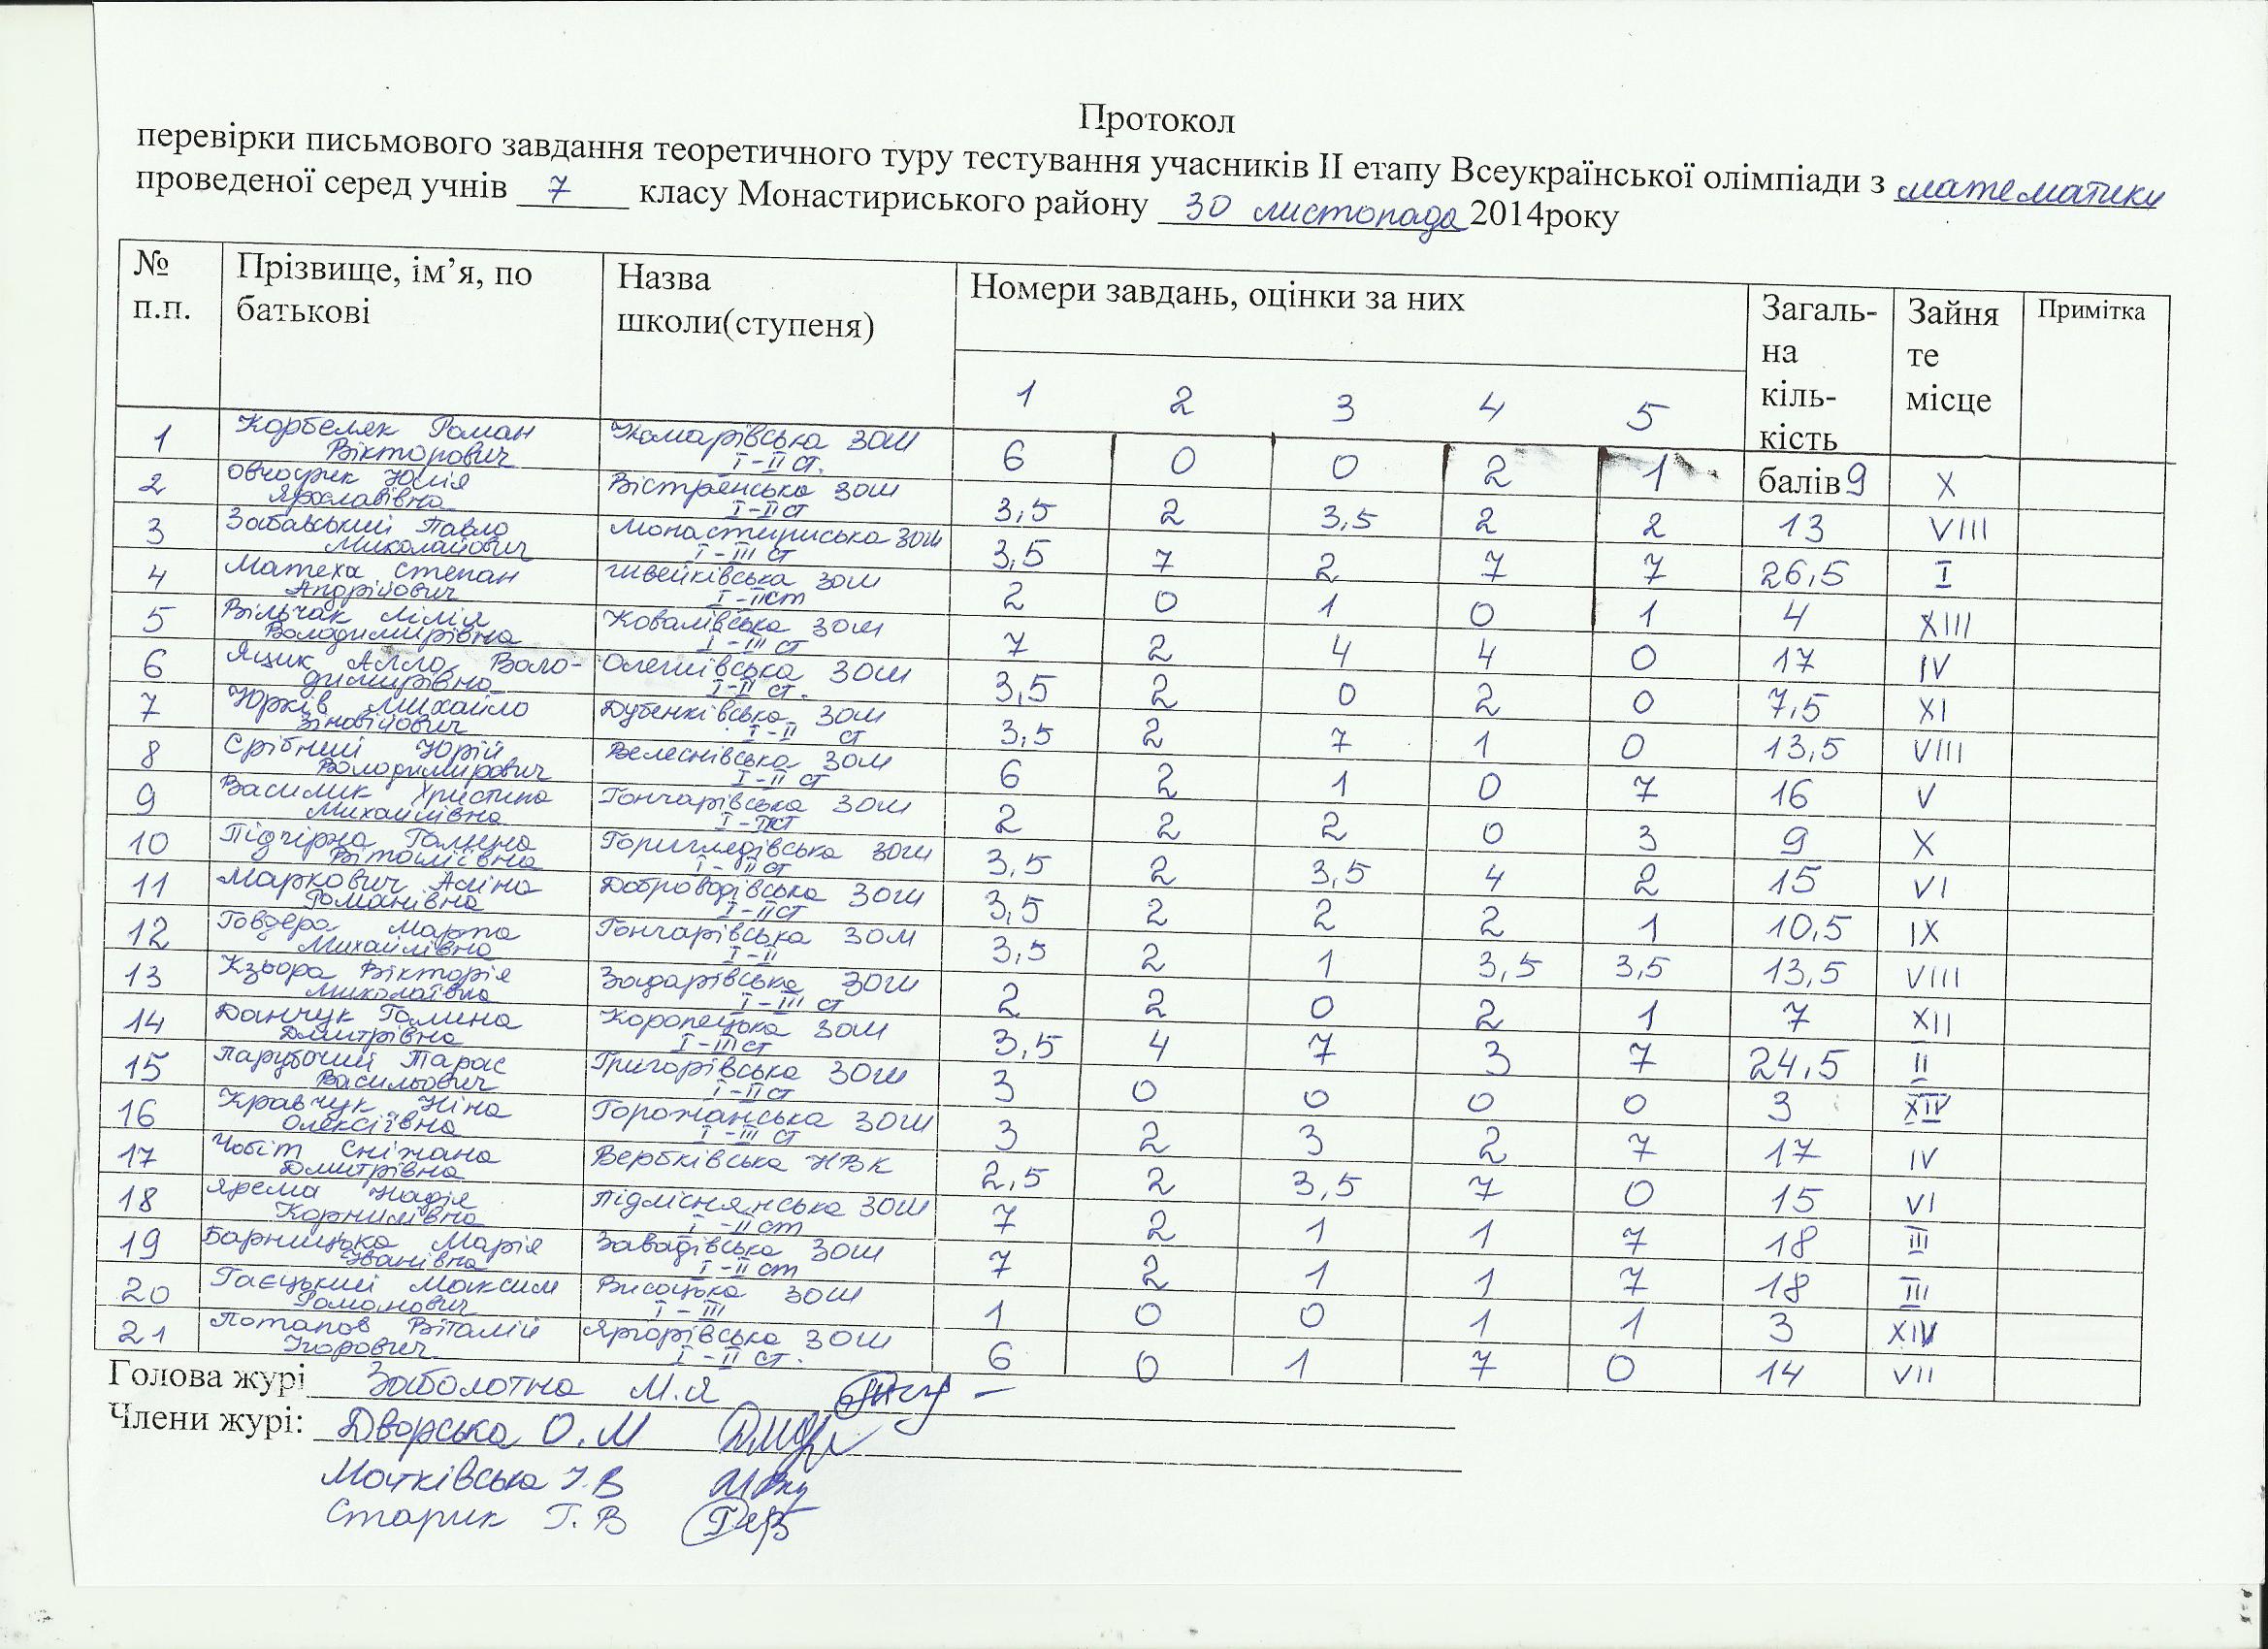 Протокол
перевірки письмового завдання теоретичного туру тестування учасників ІІ етапу Всеукраїнської олімпіади з математики
проведеної серед учнів 7 класу Монастириського району 30 листопада 2014року
№ п.п. Прізвище, ім’я, по батькові Назва школи(ступеня) Номери завдань, оцінки за них Загаль-на кіль-кість балів Зайня те місце Примітка
1 2 3 4 5
1 Корбеляк Роман Вікторович Комарівська ЗОШ І-ІІ ст. 6 0 0 2 1 9 X
2 Юлія Ярославівна Вістрянська ЗОШ І-ІІ ст 3,5 2 3,5 2 2 13 VIII
3 Забавський Павло Миколайович Монастириська ЗОШ І-ІІІ ст 3,5 7 2 7 7 26,5 I
4 Матеха Степан Андрійович Швейківська ЗОШ І-ІІ ст 2 0 1 0 1 4 XIII
5 Вільчак Лілія Володимирівна Ковалівська ЗОШ І-ІІІ ст 7 2 4 4 0 17 IV
6 Яцик Алла Воло-димирівна Олешівська ЗОШ І-ІІ ст. 3,5 2 0 2 0 7,5 XI
7 Юрків Михайло Зіновійович Дубенківська ЗОШ І-ІІ ст 3,5 2 7 1 0 13,5 VIII
8 Срібний Юрій Володимирович Велеснівська ЗОШ І-ІІ ст 6 2 1 0 7 16 V
9 Василик Христина Михайлівна Гончарівська ЗОШ І-ІІ ст 2 2 2 0 3 9 X
10 Підгірна Галина Віталіївна Горигледівська ЗОШ І-ІІ ст 3,5 2 3,5 4 2 15 VI
11 Маркович Аліна Романівна Доброводівська ЗОШ І-ІІ ст 3,5 2 2 2 1 10,5 IX
12 Говзера Марта Михайлівна Гончарівська ЗОШ І-ІІ 3,5 2 1 3,5 3,5 13,5 VIII
13 Кзьора Вікторія Миколаївна Задарівська ЗОШ І-ІІІ ст 2 2 0 2 1 7 XII
14 Данчук Галина Дмитрівна Коропецька ЗОШ І-ІІІ ст 3,5 4 7 3 7 24,5 II
15 Парубочий Тарас Васильович Григорівська ЗОШ І-ІІ ст 3 0 0 0 0 3 XIV
16 Кравчук Ніна Олексіївна Горожанська ЗОШ І-ІІІ ст 3 2 3 2 7 17 IV
17 Чобіт Сніжана Дмитрівна Вербківська НВК 2,5 2 3,5 7 0 15 VI
18 Ярема Надія Корнилівна Підліснянська ЗОШ І-ІІ ст 7 2 1 1 7 18 III
19 Барницька Марія Іванівна Завадівська ЗОШ І-ІІ ст 7 2 1 1 7 18 III
20 Гаєцький Максим Романович Висоцька ЗОШ І-ІІІ 1 0 0 1 1 3 XIV
21 Потапов Віталій Ігорович Яргорівська ЗОШ І-ІІ ст. 6 0 1 7 0 14 VII
Голова журі Заболотна М.Я
Члени журі: Дворська О.М
Мотківська І.В
Старик Г.В